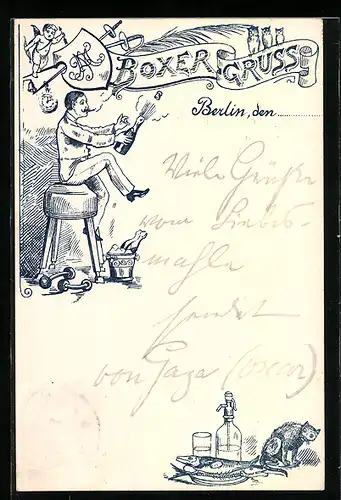 BOXER GRUSS
Berlin, den
Viele Grüße
vom Liebes-
mahle
sendet
von (Oscar)